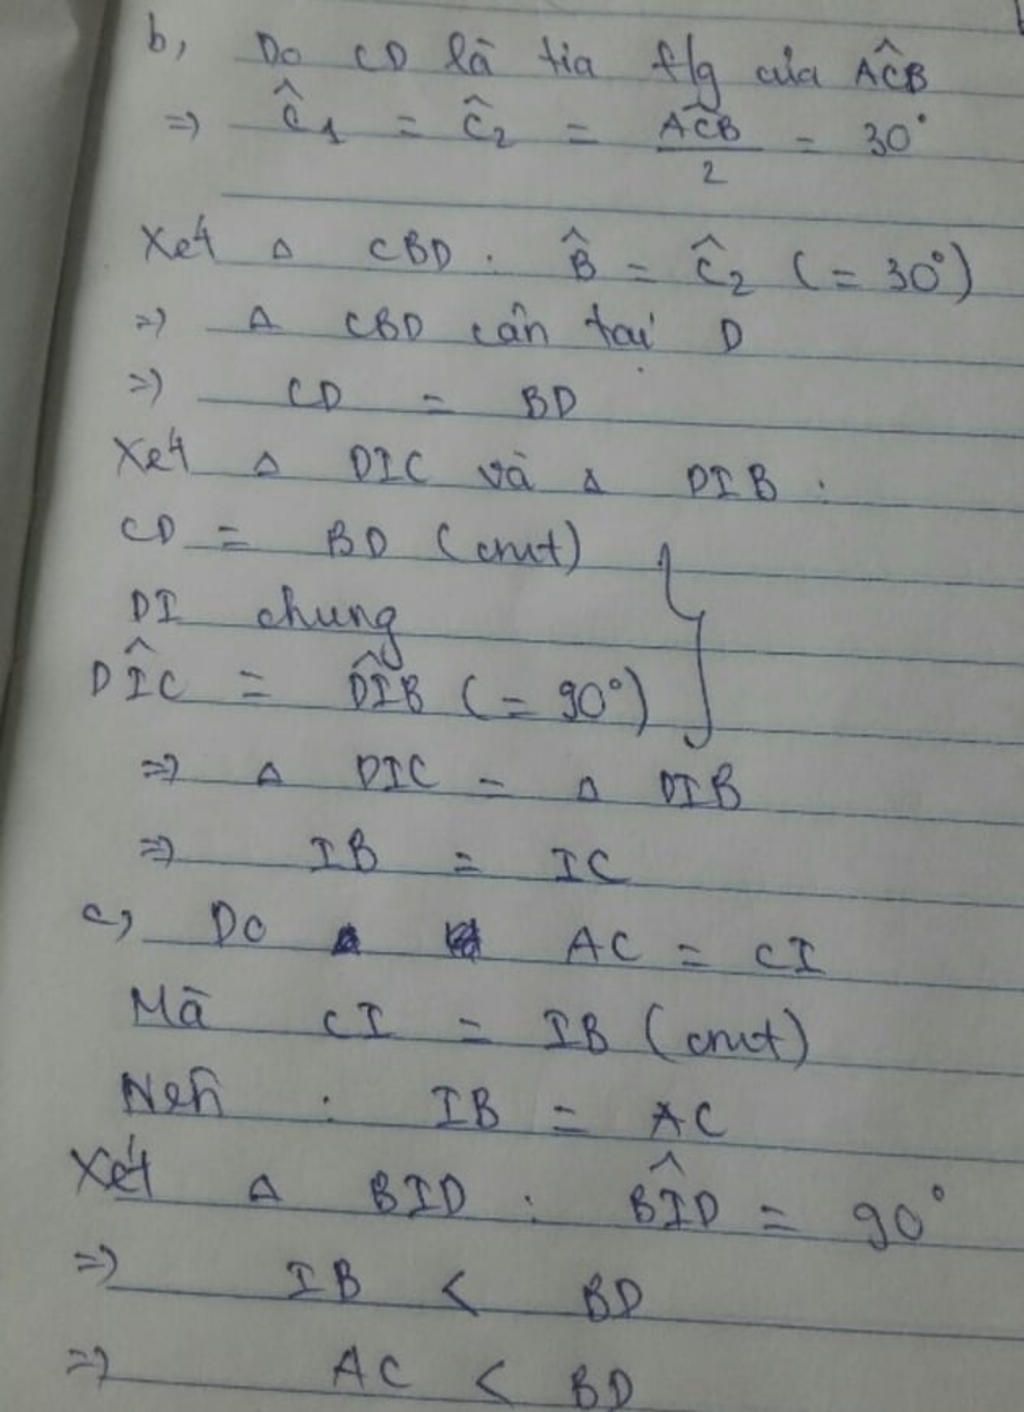 b, Do CD là tia f/g của ACB^
=> C^1 = C^2 = ACB^/2 = 30°
Xét Δ CBD : B^ = C^2 (= 30°)
=> Δ CBD cân tại D
=> CD = BD
Xét Δ DIC và Δ DIB :
CD = BD (cmt)
DI chung
DI^C = DI^B (= 90°)
=> Δ DIC = Δ DIB
=> IB = IC
c, Do AC = CI
Mà CI = IB (cmt)
Nên : IB = AC
Xét Δ BID : BI^D = 90°
=> IB < BD
=> AC < BD